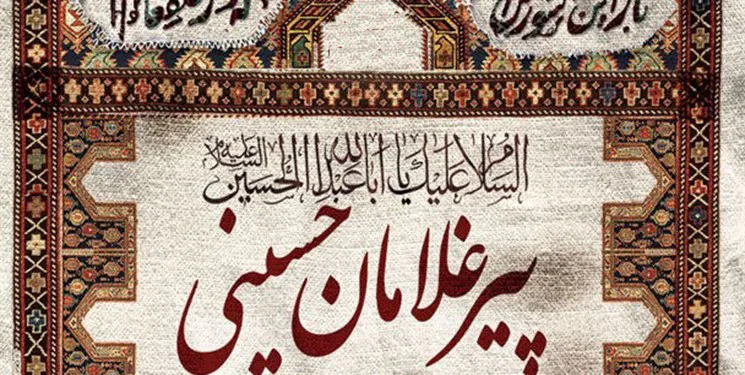 السلام علیک یا اباعبدالله الحسین علیه السلام
پیرغلامان حسینی